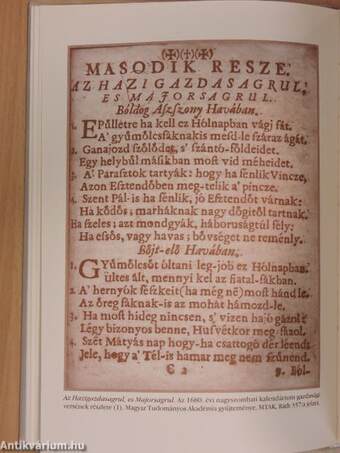 (✠)(†)(✠)
MASODIK RESZE.
AZ HAZI GAZDASAGRUL,
ES MAJORSAGRUL.
Bóldog Aszszony Havában.
1. EPűlletre ha kell ez Hólnapban vágj fát.
A' gyűmőlcsfáknakis mesd-le száraz ágát.
2. Ganajozd szőlődet, s' szántó-főldeidet.
Egy helyből másikban most vid méheidet.
3. A' Parasztok tartyák: hogy ha fénlik Vincze,
Azon Esztendőben meg-telik a' pincze.
4. Szent Pál-is ha fénlik, jó Esztendőt várnak:
Ha kődős; marháknak nagy dőgitől tartnak.
Ha szeles; azt mondgyák, háboruságtúl fély:
Ha essős, vagy havas; bővséget ne remény.
Bőjt-elő Havában.
1. GYűmőlcsőt óltani leg-job ez Hólnapban.
Ultes ált, mennyi kel az fiatal-fákban.
2. A' hernyók feszkeit (ha még né) most hánd le.
Az őreg fáknak-is az mohát hámozd-le.
3. Ha most hideg nincsen, s' vizen hajó gázól:
Légy bizonyos benne, Husvétkor meg-fázol.
4. Szét Mátyás nap hogy-ha csattogó dér leend;
Jele, hogy a' Tél-is hamar meg nem szűnend.
5. Ból-
Az Hazigazdasagrul, es Majorsagrul. Az 1680. évi nagyszombati kalendárium gazdasági
versének részlete (1). Magyar Tudományos Akadémia gyűjteménye. MTAK, Ráth
Antikvárium.hu